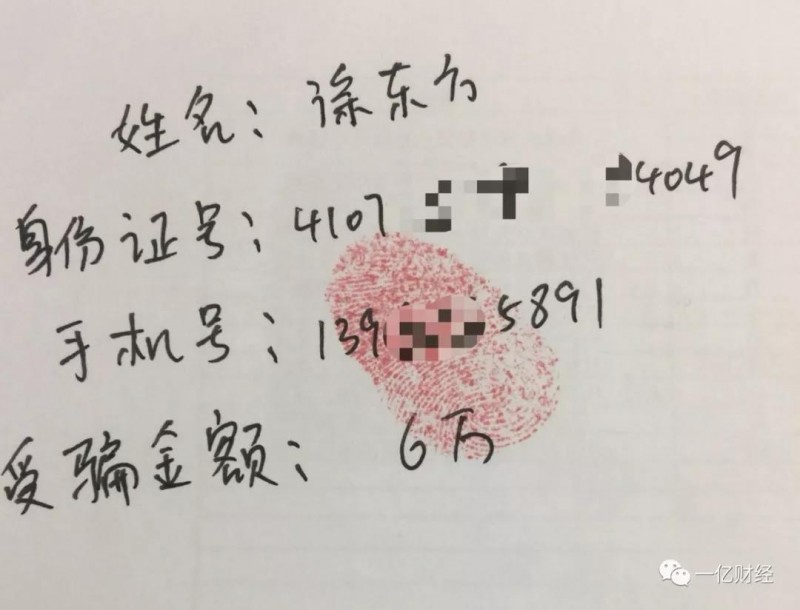 姓名：徐东方
身份证号：4107 4049
手机号：139 5891
受骗金额：6万
一亿财经